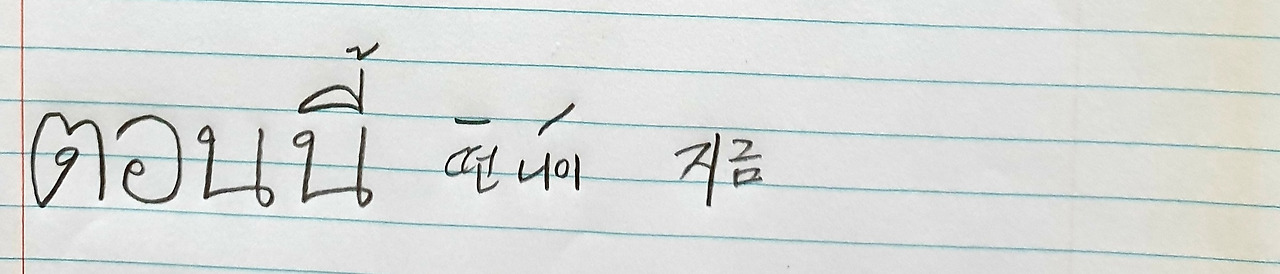 ตอนนี้ 떤 니이 지금